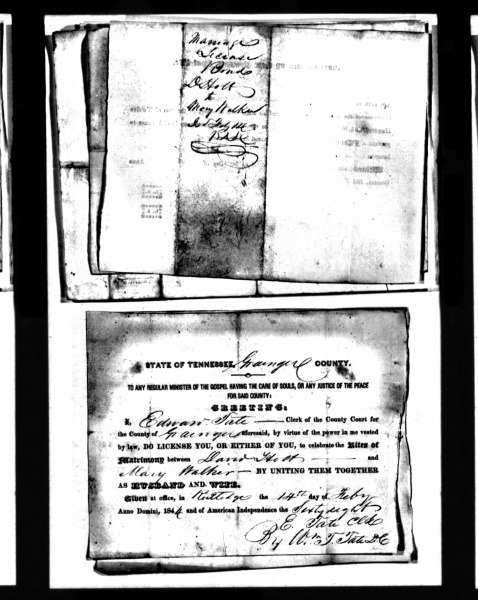 Marriage
License
Bond
D Holt
to
Mary Walker
STATE OF TENNESSEE, Grainger COUNTY.
TO ANY REGULAR MINISTER OF THE GOSPEL HAVING THE CARE OF SOULS, OR ANY JUSTICE OF THE PEACE
FOR SAID COUNTY:
GREETING:
I, Edward Tate Clerk of the County Court for
the County of Grainger aforesaid, by virtue of the power in me vested
by law, DO LICENSE YOU, OR EITHER OF YOU, to celebrate the Rites of
Matrimony between David Holt and
Mary Walker BY UNITING THEM TOGETHER
AS HUSBAND AND WIFE.
Given at office, in Rutledge the 14th day of Feby
Anno Domini, 184 and of American Independence the Sixty eight
E. Tate Clk
By Wm T. Tate D.C